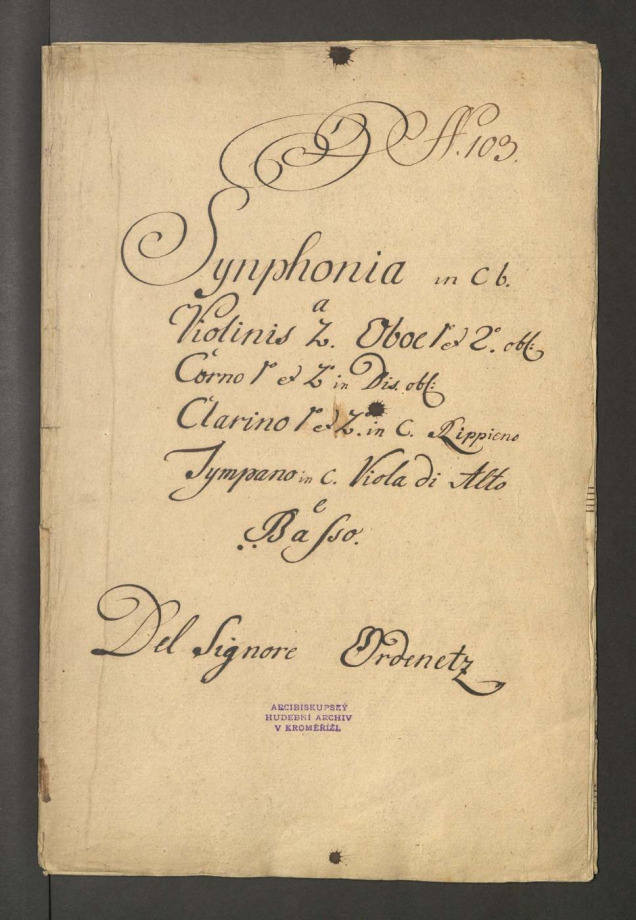 N. 103.
Synphonia in C b.
a
Violinis 2. Oboe 1º et 2º. obl:
Corno 1º et 2º in Dis. obl:
Clarino 1º et 2º. in C. Rippieno
Tympano in C. Viola di Alto
e
Basso.
Del Signore Ordenetz
ARCIBISKUPSKÝ
HUDEBNÍ ARCHIV
V KROMĚŘÍŽI.